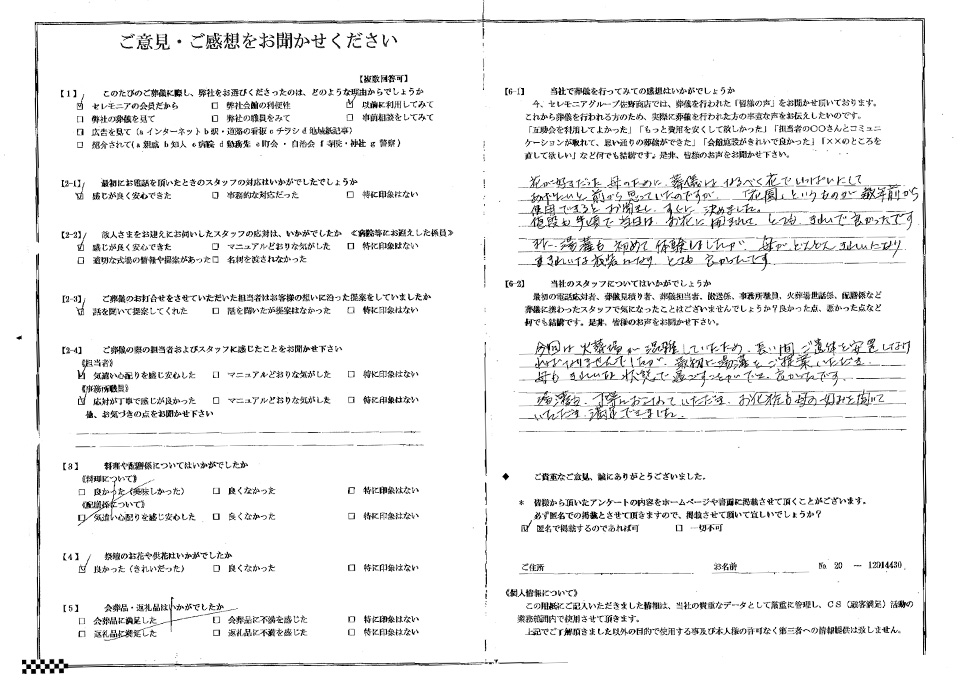 ご意見・ご感想をお聞かせください
【複数回答可】
【1】 このたびのご葬儀に際し、弊社をお選びくださったのは、どのような理由からでしょうか
☑ セレモニアの会員だから □ 弊社会館の利便性 ☑ 以前に利用してみて
□ 弊社の葬儀を見て □ 弊社の職員をみて □ 事前相談をしてみて
□ 広告を見て (a インターネット b 駅・道路の看板 c チラシ d 地域紙記事)
□ 紹介されて (a 親戚 b 知人 c 病院 d 勤務先 e 町会・自治会 f 寺院・神社 g 警察)
【2-1】 最初にお電話を頂いたときのスタッフの対応はいかがでしたでしょうか
☑ 感じが良く安心できた □ 事務的な対応だった □ 特に印象はない
【2-2】 故人さまをお迎えにお伺いしたスタッフの応対は、いかがでしたか 《病院等にお迎えした係員》
☑ 感じが良く安心できた □ マニュアルどおりな気がした □ 特に印象はない
□ 適切な式場の情報や提案があった □ 名刺を渡されなかった
【2-3】 ご葬儀のお打合せをさせていただいた担当者はお客様の想いに沿った提案をしていましたか
☑ 話を聞いて提案してくれた □ 話を聞いたが提案はなかった □ 特に印象はない
【2-4】 ご葬儀の際の担当者およびスタッフに感じたことをお聞かせ下さい
《担当者》
☑ 気遣い心配りを感じ安心した □ マニュアルどおりな気がした □ 特に印象はない
《事務所職員》
☑ 応対が丁寧で感じが良かった □ マニュアルどおりな気がした □ 特に印象はない
他、お気づきの点をお聞かせ下さい
【3】 料理や配膳係についてはいかがでしたか
《料理について》
□ 良かった (美味しかった) □ 良くなかった □ 特に印象はない
《配膳係について》
□ 気遣い心配りを感じ安心した □ 良くなかった □ 特に印象はない
【4】 祭壇のお花や供花はいかがでしたか
☑ 良かった (きれいだった) □ 良くなかった □ 特に印象はない
【5】 会葬品・返礼品はいかがでしたか
□ 会葬品に満足した □ 会葬品に不満を感じた □ 特に印象はない
□ 返礼品に満足した □ 返礼品に不満を感じた □ 特に印象はない
【6-1】 当社で葬儀を行ってみての感想はいかがでしょうか
今、セレモニアグループ佐野商店では、葬儀を行われた「皆様の声」をお聞かせ頂いております。
これから葬儀を行われる方のため、実際に葬儀を行われた方の率直な声をお伝えしたいのです。
「互助会を利用してよかった」「もっと費用を安くして欲しかった」「担当者の〇〇さんとコミュニ
ケーションが取れて、思い通りの葬儀ができた」「会館施設がきれいで良かった」「××のところを
直して欲しい」など何でも結構です。是非、皆様のお声をお聞かせ下さい。
花が好きだった母のために、葬儀はなるべく花でいっぱいにして
あげたいと前から思っていたのですが、「花園」というものが数年前から
使用できるとお聞きし、すぐに決めました。
値段も手頃で当日は、お花に囲まれて、とても、きれいで良かったです
また、湯灌も初めて体験しましたが、母が、どんどんきれいになり
きれいな衣装になり、とても良かったです。
【6-2】 当社のスタッフについてはいかがでしょうか
最初の電話応対者、葬儀見積り者、葬儀担当者、搬送係、事務所職員、火葬場世話係、配膳係など
葬儀に携わったスタッフで気になったことはございませんでしょうか?良かった点、悪かった点など
何でも結構です。是非、皆様のお声をお聞かせ下さい。
今回は火葬場が混雑していたため、長い間ご遺体を安置しなけ
ればなりませんでしたが、最初に湯灌をご提案いただき、
母もきれいな状態で過ごすことができ、良かったです。
湯灌も、丁寧におこなっていただき、お化粧も母の好みを聞いて
いただき満足できました。
◆ ご貴重なご意見、誠にありがとうございました。
* 皆様から頂いたアンケートの内容をホームページや書面に掲載させて頂くことがございます。
必ず匿名での掲載とさせて頂きますので、掲載させて頂いて宜しいでしょうか?
☑ 匿名で掲載するのであれば可 □ 一切不可
ご住所 お名前 No 20 ― 12014430
《個人情報について》
この用紙にご記入いただきました情報は、当社の貴重なデータとして厳重に管理し、CS(顧客満足)活動の
業務範囲内で使用させて頂きます。
上記でご了解頂きました以外の目的で使用する事及び本人様の許可なく第三者への情報提供は致しません。